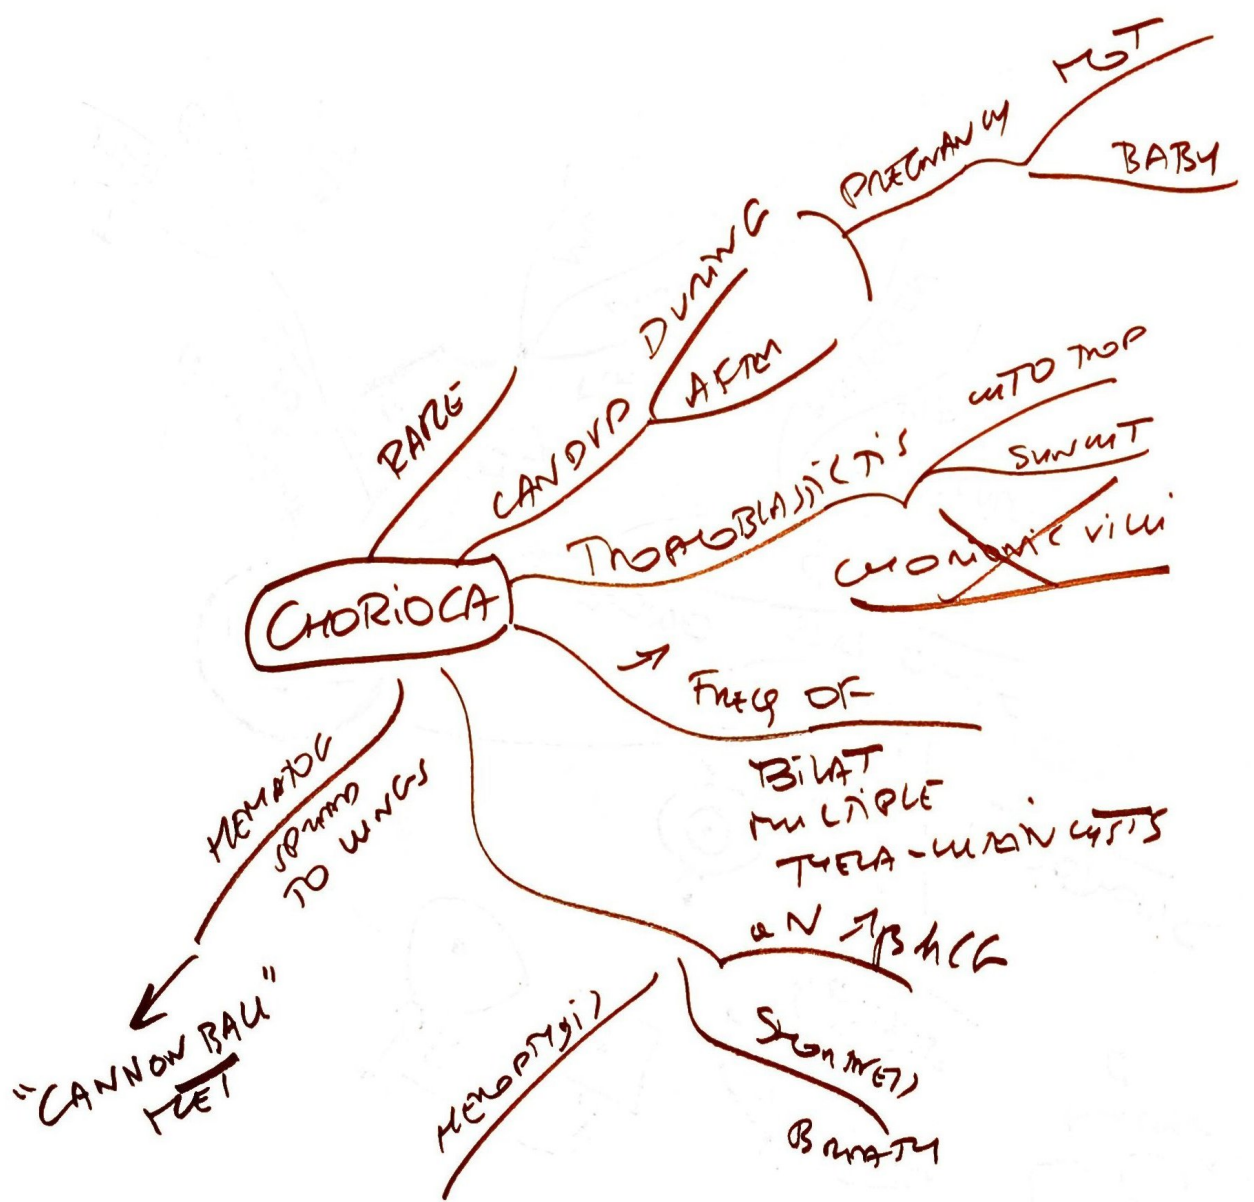 RARE
CAN DVP
DURING
AFTER
PREGNANCY
MOT
BABY
CHORIOCA
TROPHOBLASTIC TIS
CYTO TROP
SYNCYT
CHORIONIC VILLI
↗
FREQ OF
BILAT
MULTIPLE
THECA-LUTEIN CYSTS
↗ βHCG
SHORTNESS
BREATH
HEMOPTYSIS
HEMATOG
SPREAD
TO LUNGS
"CANNON BALL"
MET